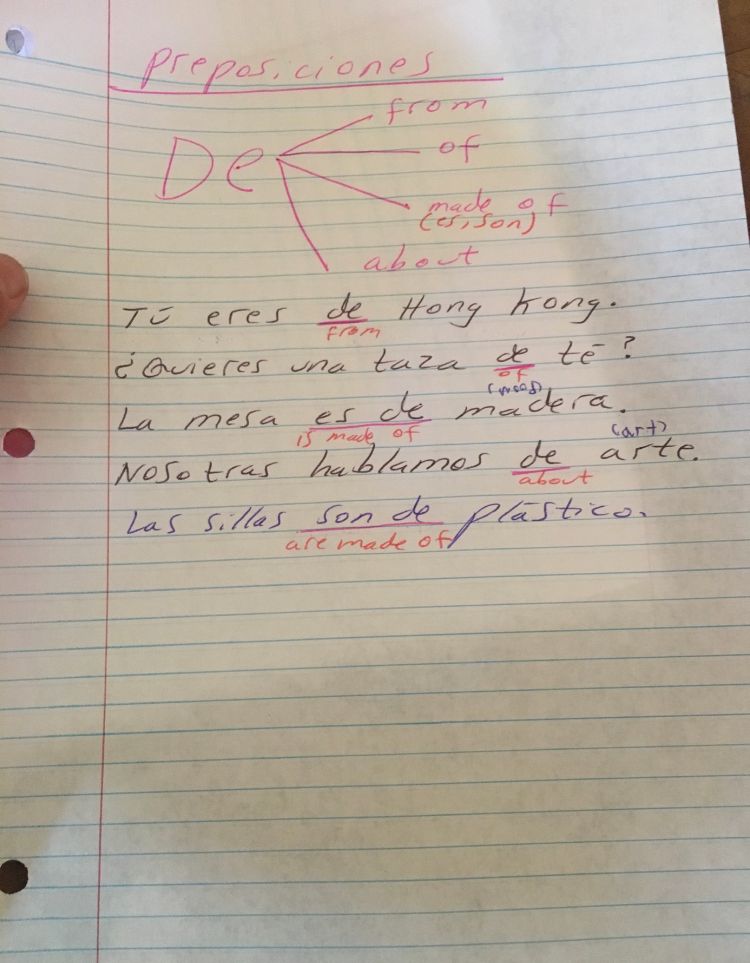 Preposiciones
from
De
of
made of
(es, son)
about
Tú eres de Hong Kong.
from
¿Quieres una taza de té?
of
(wood)
La mesa es de madera.
is made of
(art)
Nosotras hablamos de arte.
about
Las sillas son de plástico.
are made of